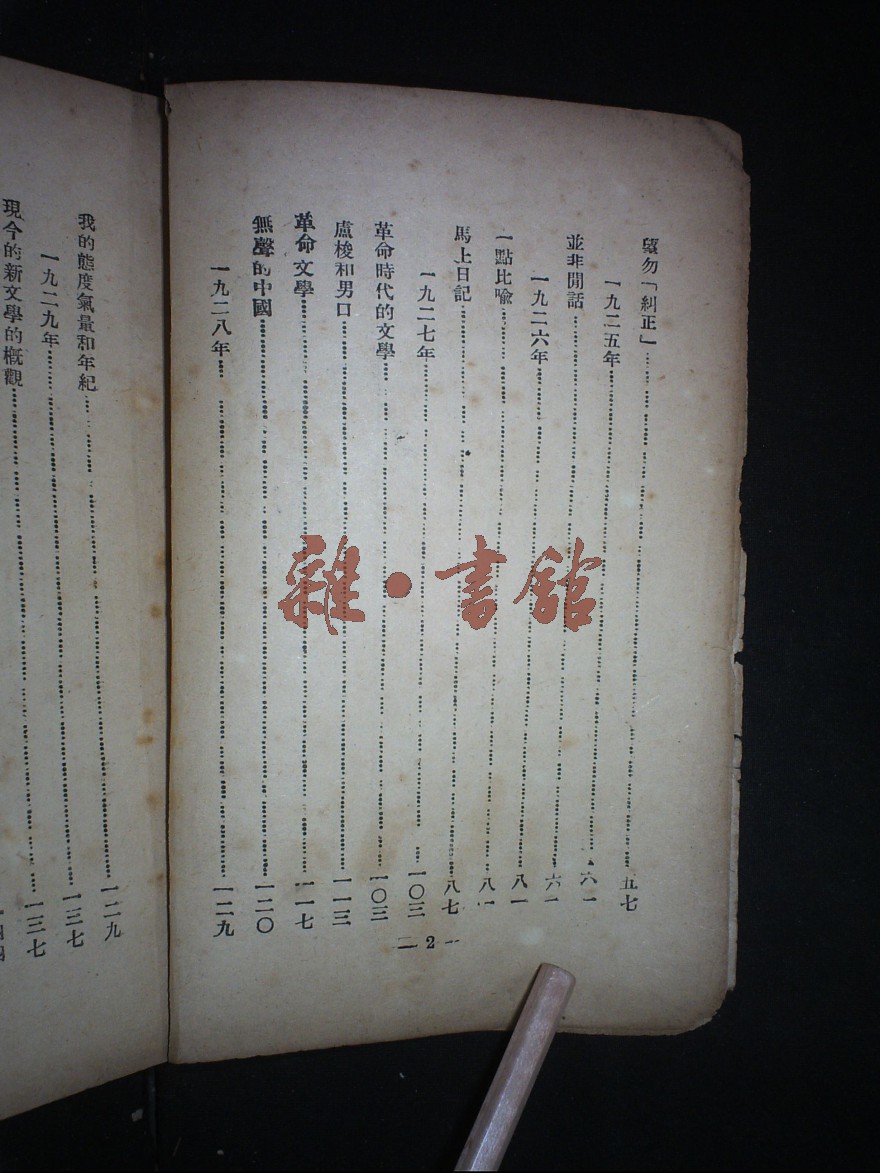 望勿「糾正」 五七
一九二五年 六一
並非閒話 六一
一九二六年 八一
一點比喩 八一
馬上日記 八七
一九二七年 一〇三
革命時代的文學 一〇三
盧梭和男口 一一三
革命文學 一一七
無聲的中國 一二〇
一九二八年 一二九
2
我的態度氣量和年紀 一二九
一九二九年 一三七
現今的新文學的槪觀 一三七
雜·書舘